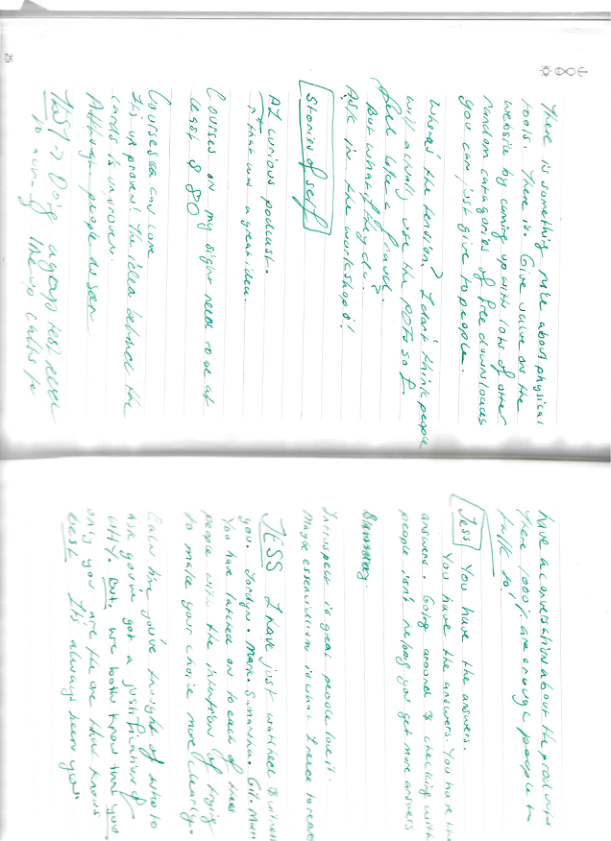 25
There is something nice about physical
tools. There is. Give value on the
website by coming up with lots of other
random catagories of free downloads
you can just give to people.
Where's the tension? I don't think people
will actually use the PDFs so I
feel like a fraud.
But what if they do?
Ask in the workshop!!
Stories of self
AI curious podcast.
that was a great idea.
Courses on my site need to be at
least $80
Courses can come
It's unproven! The idea behind the
cards is unproven.
Although people as seen
TEST → Doing agency
to a line up calls to
have a conversation about the products
There 1000% are enough people to
talk to!
Jess You have the answers.
You have the answers. You have the
answers. Going around & checking with
people isn't helping you get more answers
Introspect is great people love it.
Maybe essentialism is what I need to read
JESS I have just watched & witness
you. Jordyn. Mark. Samantha. Gill. Mum
You have latched on to each of these
people with the intention of trying
to make your choice more clearly.
Each time you've thought of who to
ask you've got a justification of
WHY. But, we both know that you,
only you are the one that knows
best. It's always been you.